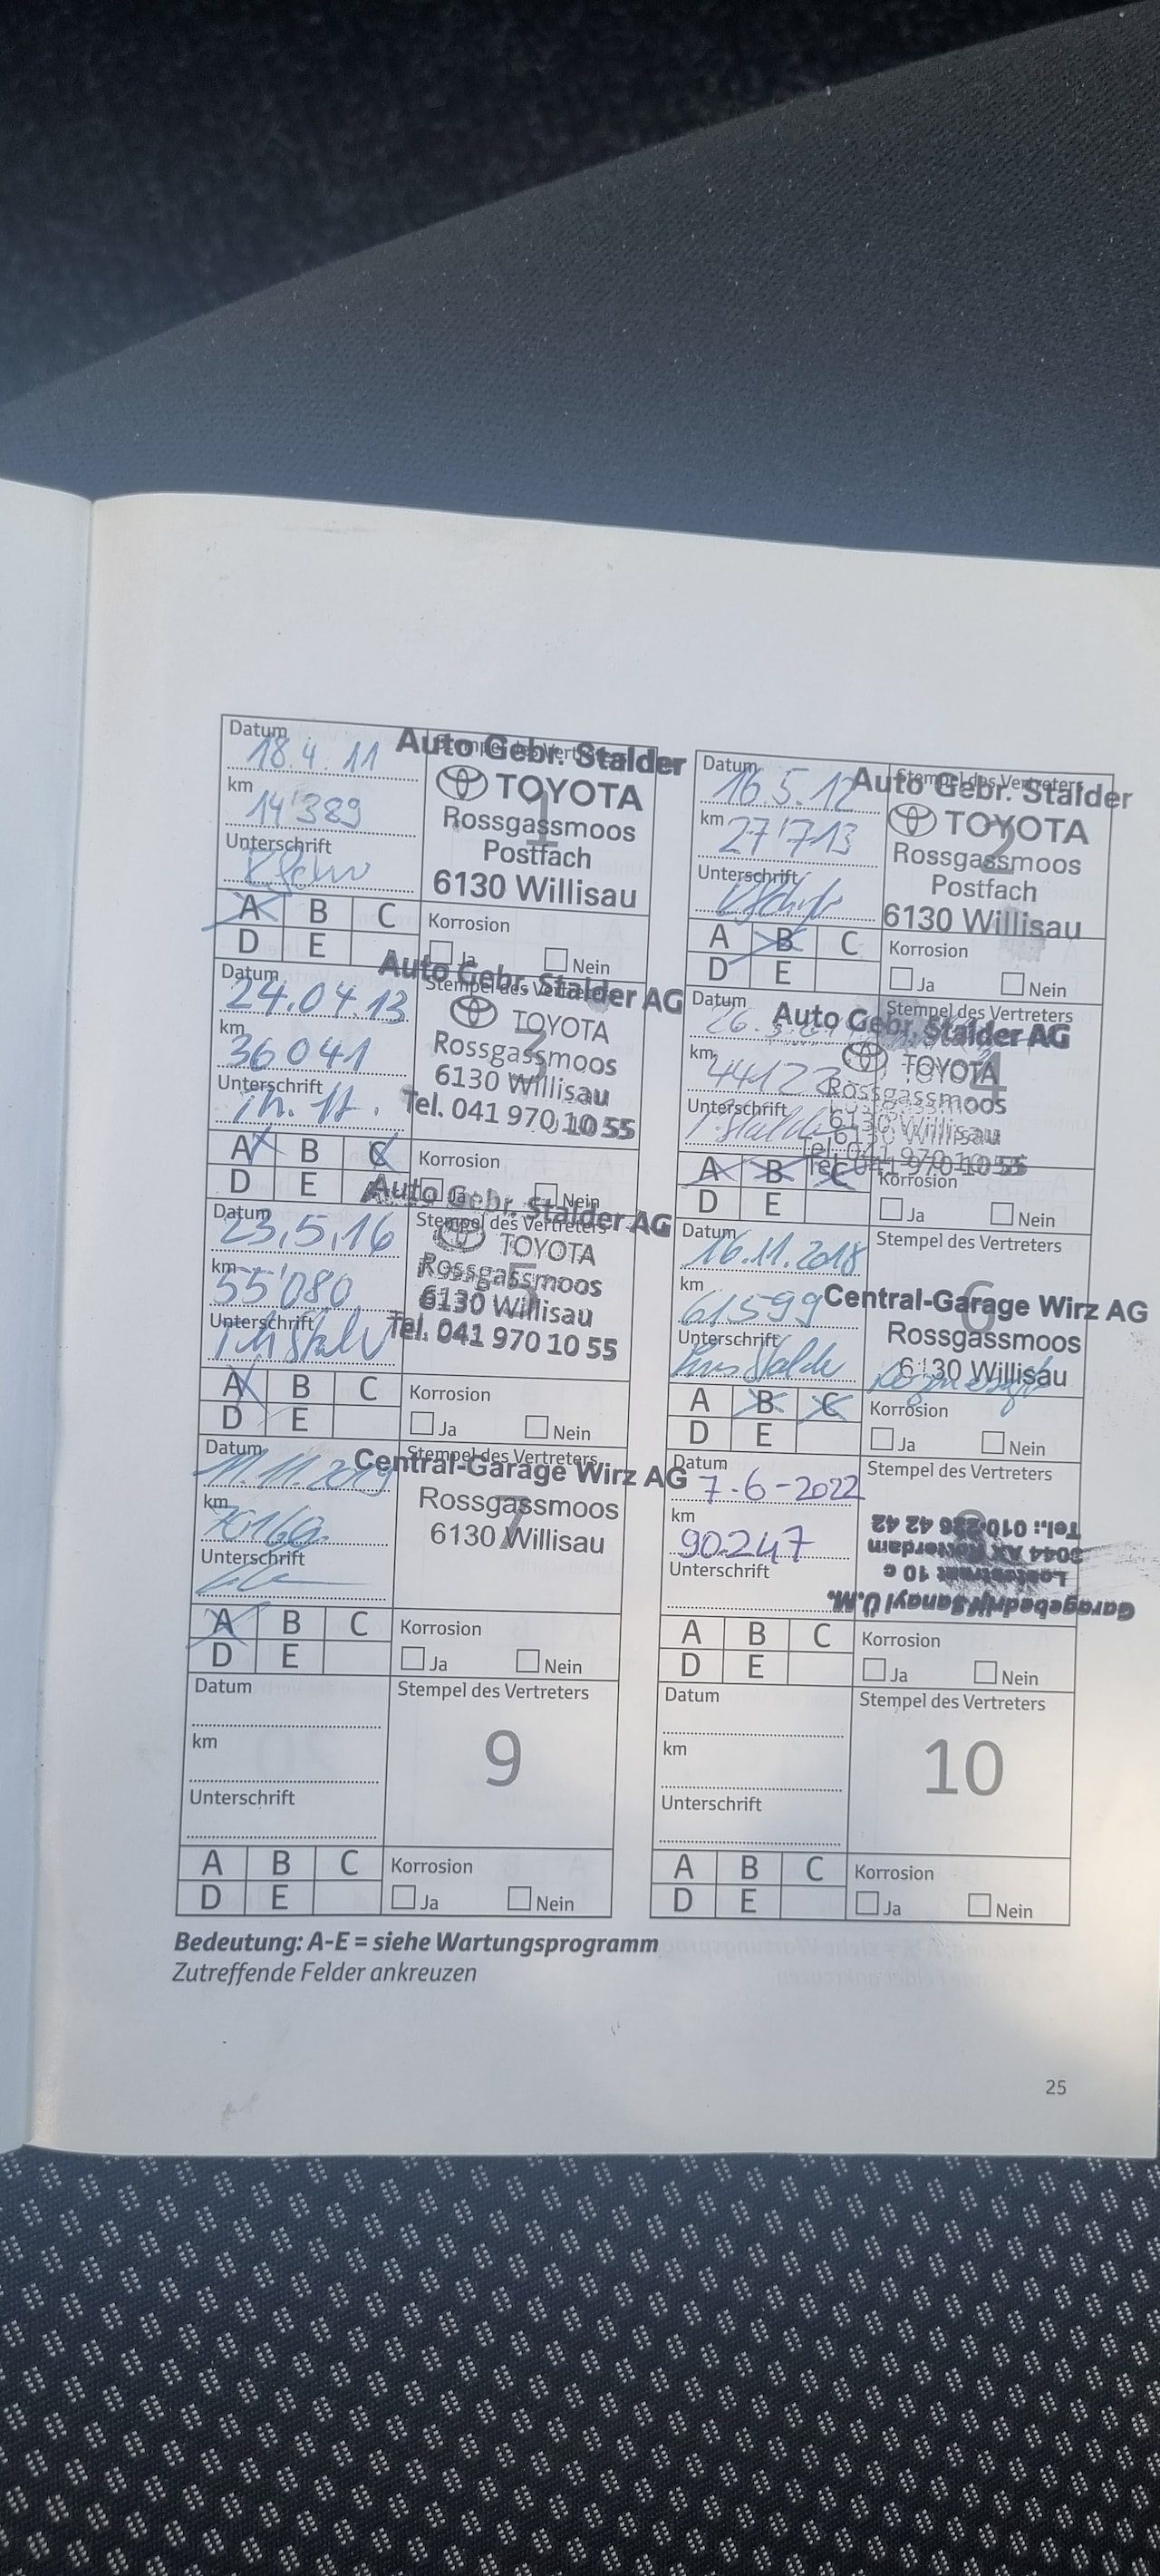 Datum
18.4.11
km
14'389
Unterschrift
Auto Gebr. Stalder
TOYOTA
1
Rossgassmoos
Postfach
6130 Willisau
A B C
D E
Korrosion
Ja Nein
Datum
16.5.12
km
27'713
Unterschrift
Stempel des Vertreters
Auto Gebr. Stalder
TOYOTA
2
Rossgassmoos
Postfach
6130 Willisau
A B C
D E
Korrosion
Ja Nein
Datum
24.04.13
km
36041
Unterschrift
Stempel des Vertreters
Auto Gebr. Stalder AG
TOYOTA
3
Rossgassmoos
6130 Willisau
Tel. 041 970 10 55
A B C
D E
Korrosion
Ja Nein
Datum
km
Unterschrift
Stempel des Vertreters
Auto Gebr. Stalder AG
TOYOTA
4
Rossgassmoos
6130 Willisau
Tel. 041 970 10 55
A B C
D E
Korrosion
Ja Nein
Datum
23.5.16
km
55'080
Unterschrift
Stempel des Vertreters
Auto Gebr. Stalder AG
TOYOTA
5
Rossgassmoos
6130 Willisau
Tel. 041 970 10 55
A B C
D E
Korrosion
Ja Nein
Datum
16.11.2018
km
61599
Unterschrift
Stempel des Vertreters
6
Central-Garage Wirz AG
Rossgassmoos
6130 Willisau
A B C
D E
Korrosion
Ja Nein
Datum
11.11.2019
km
Unterschrift
Stempel des Vertreters
Central-Garage Wirz AG
Rossgassmoos
7
6130 Willisau
A B C
D E
Korrosion
Ja Nein
Datum
7-6-2022
km
90.247
Unterschrift
Stempel des Vertreters
Garagebedrijf Sanayi Ü.M.
10 c
3044 AX Rotterdam
Tel.: 010 226 42 42
A B C
D E
Korrosion
Ja Nein
Datum
km
Unterschrift
Stempel des Vertreters
9
A B C
D E
Korrosion
Ja Nein
Datum
km
Unterschrift
Stempel des Vertreters
10
A B C
D E
Korrosion
Ja Nein
Bedeutung: A-E = siehe Wartungsprogramm
Zutreffende Felder ankreuzen
25